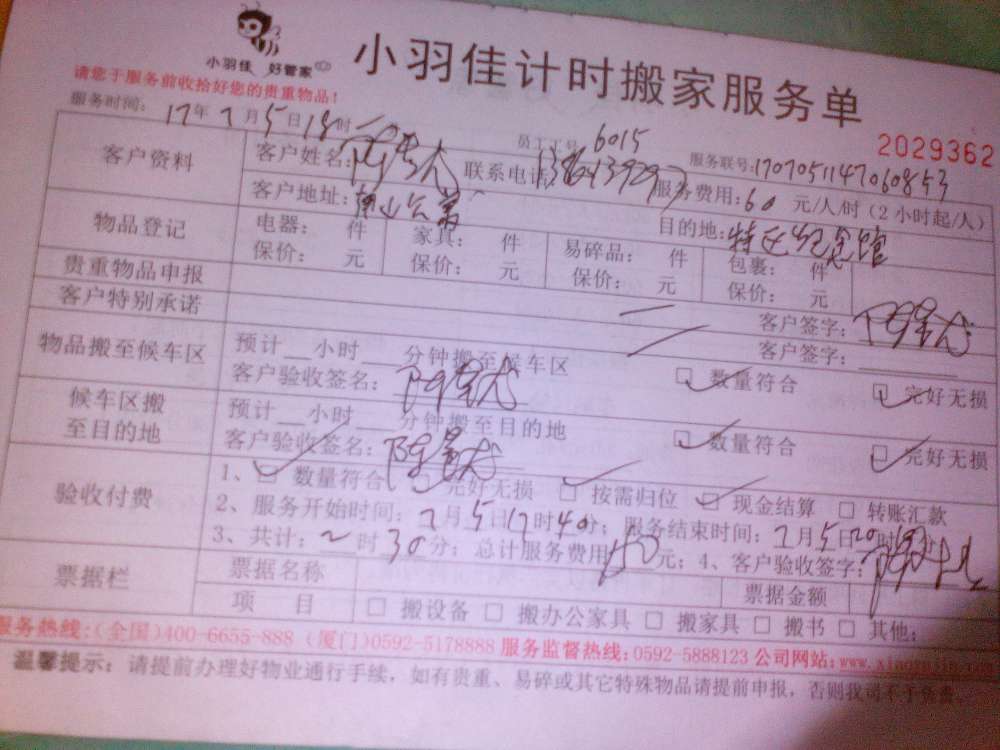 小羽佳 好管家
小羽佳计时搬家服务单
请您于服务前收拾好您的贵重物品!
2029362
服务时间: 17年7月5日18时
员工工号 6015
服务联号:1707051147060853
客户资料
客户姓名:
联系电话:
服务费用:60 元/人/时(2小时起/人)
客户地址:
目的地:特区纪念馆
物品登记
电器: 件 家具: 件 易碎品: 件 包裹: 件
保价: 元 保价: 元 保价: 元 保价: 元
贵重物品申报
客户签字:
客户特别承诺
客户签字:
物品搬至候车区
预计__小时__分钟搬至候车区
客户验收签名:
□ 数量符合 □ 完好无损
候车区搬
至目的地
预计__小时__分钟搬至目的地
客户验收签名:
□ 数量符合 □ 完好无损
验收付费
1、□ 数量符合 □ 完好无损 □ 按需归位 □ 现金结算 □ 转账汇款
2、服务开始时间:7月5日17时40分;服务结束时间:7月5日20时
3、共计:2时30分;总计服务费用150元;4、客户验收签字:
票据栏
票据名称
票据金额
项 目 □ 搬设备 □ 搬办公家具 □ 搬家具 □ 搬书 □ 其他:
服务热线:(全国)400-6655-888 (厦门)0592-5178888 服务监督热线:0592-5888123 公司网站:
温馨提示:请提前办理好物业通行手续,如有贵重、易碎或其它特殊物品请提前申报,否则我司不予负责。